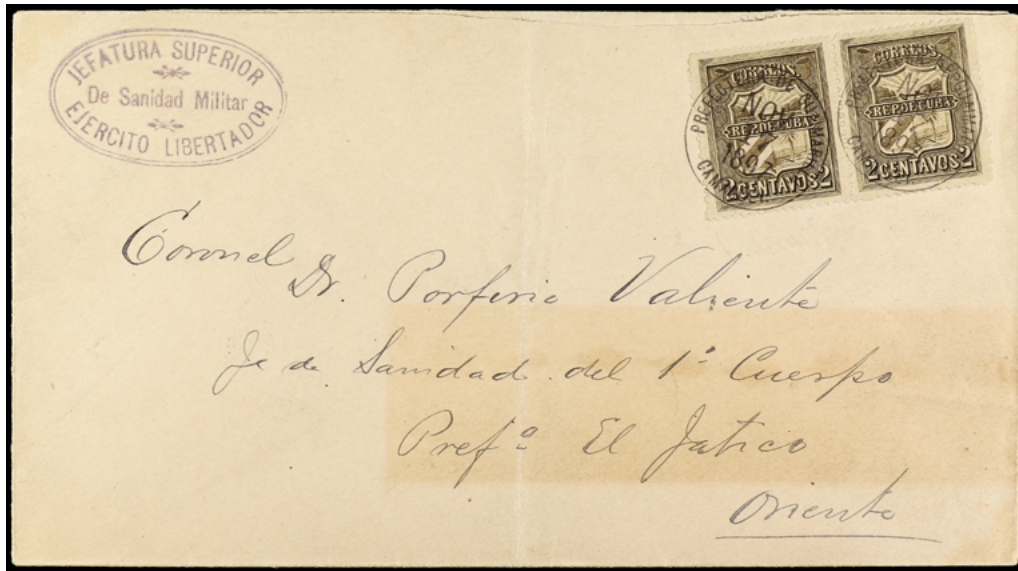 JEFATURA SUPERIOR
De Sanidad Militar
EJERCITO LIBERTADOR
CORREOS.
REP. DE CUBA
2 CENTAVOS 2
NOV
1897
CORREOS.
REP. DE CUBA
2 CENTAVOS 2
Coronel
Dr. Porfirio Valiente
Je de Sanidad del 1º Cuerpo
Prefª El Jatico
Oriente